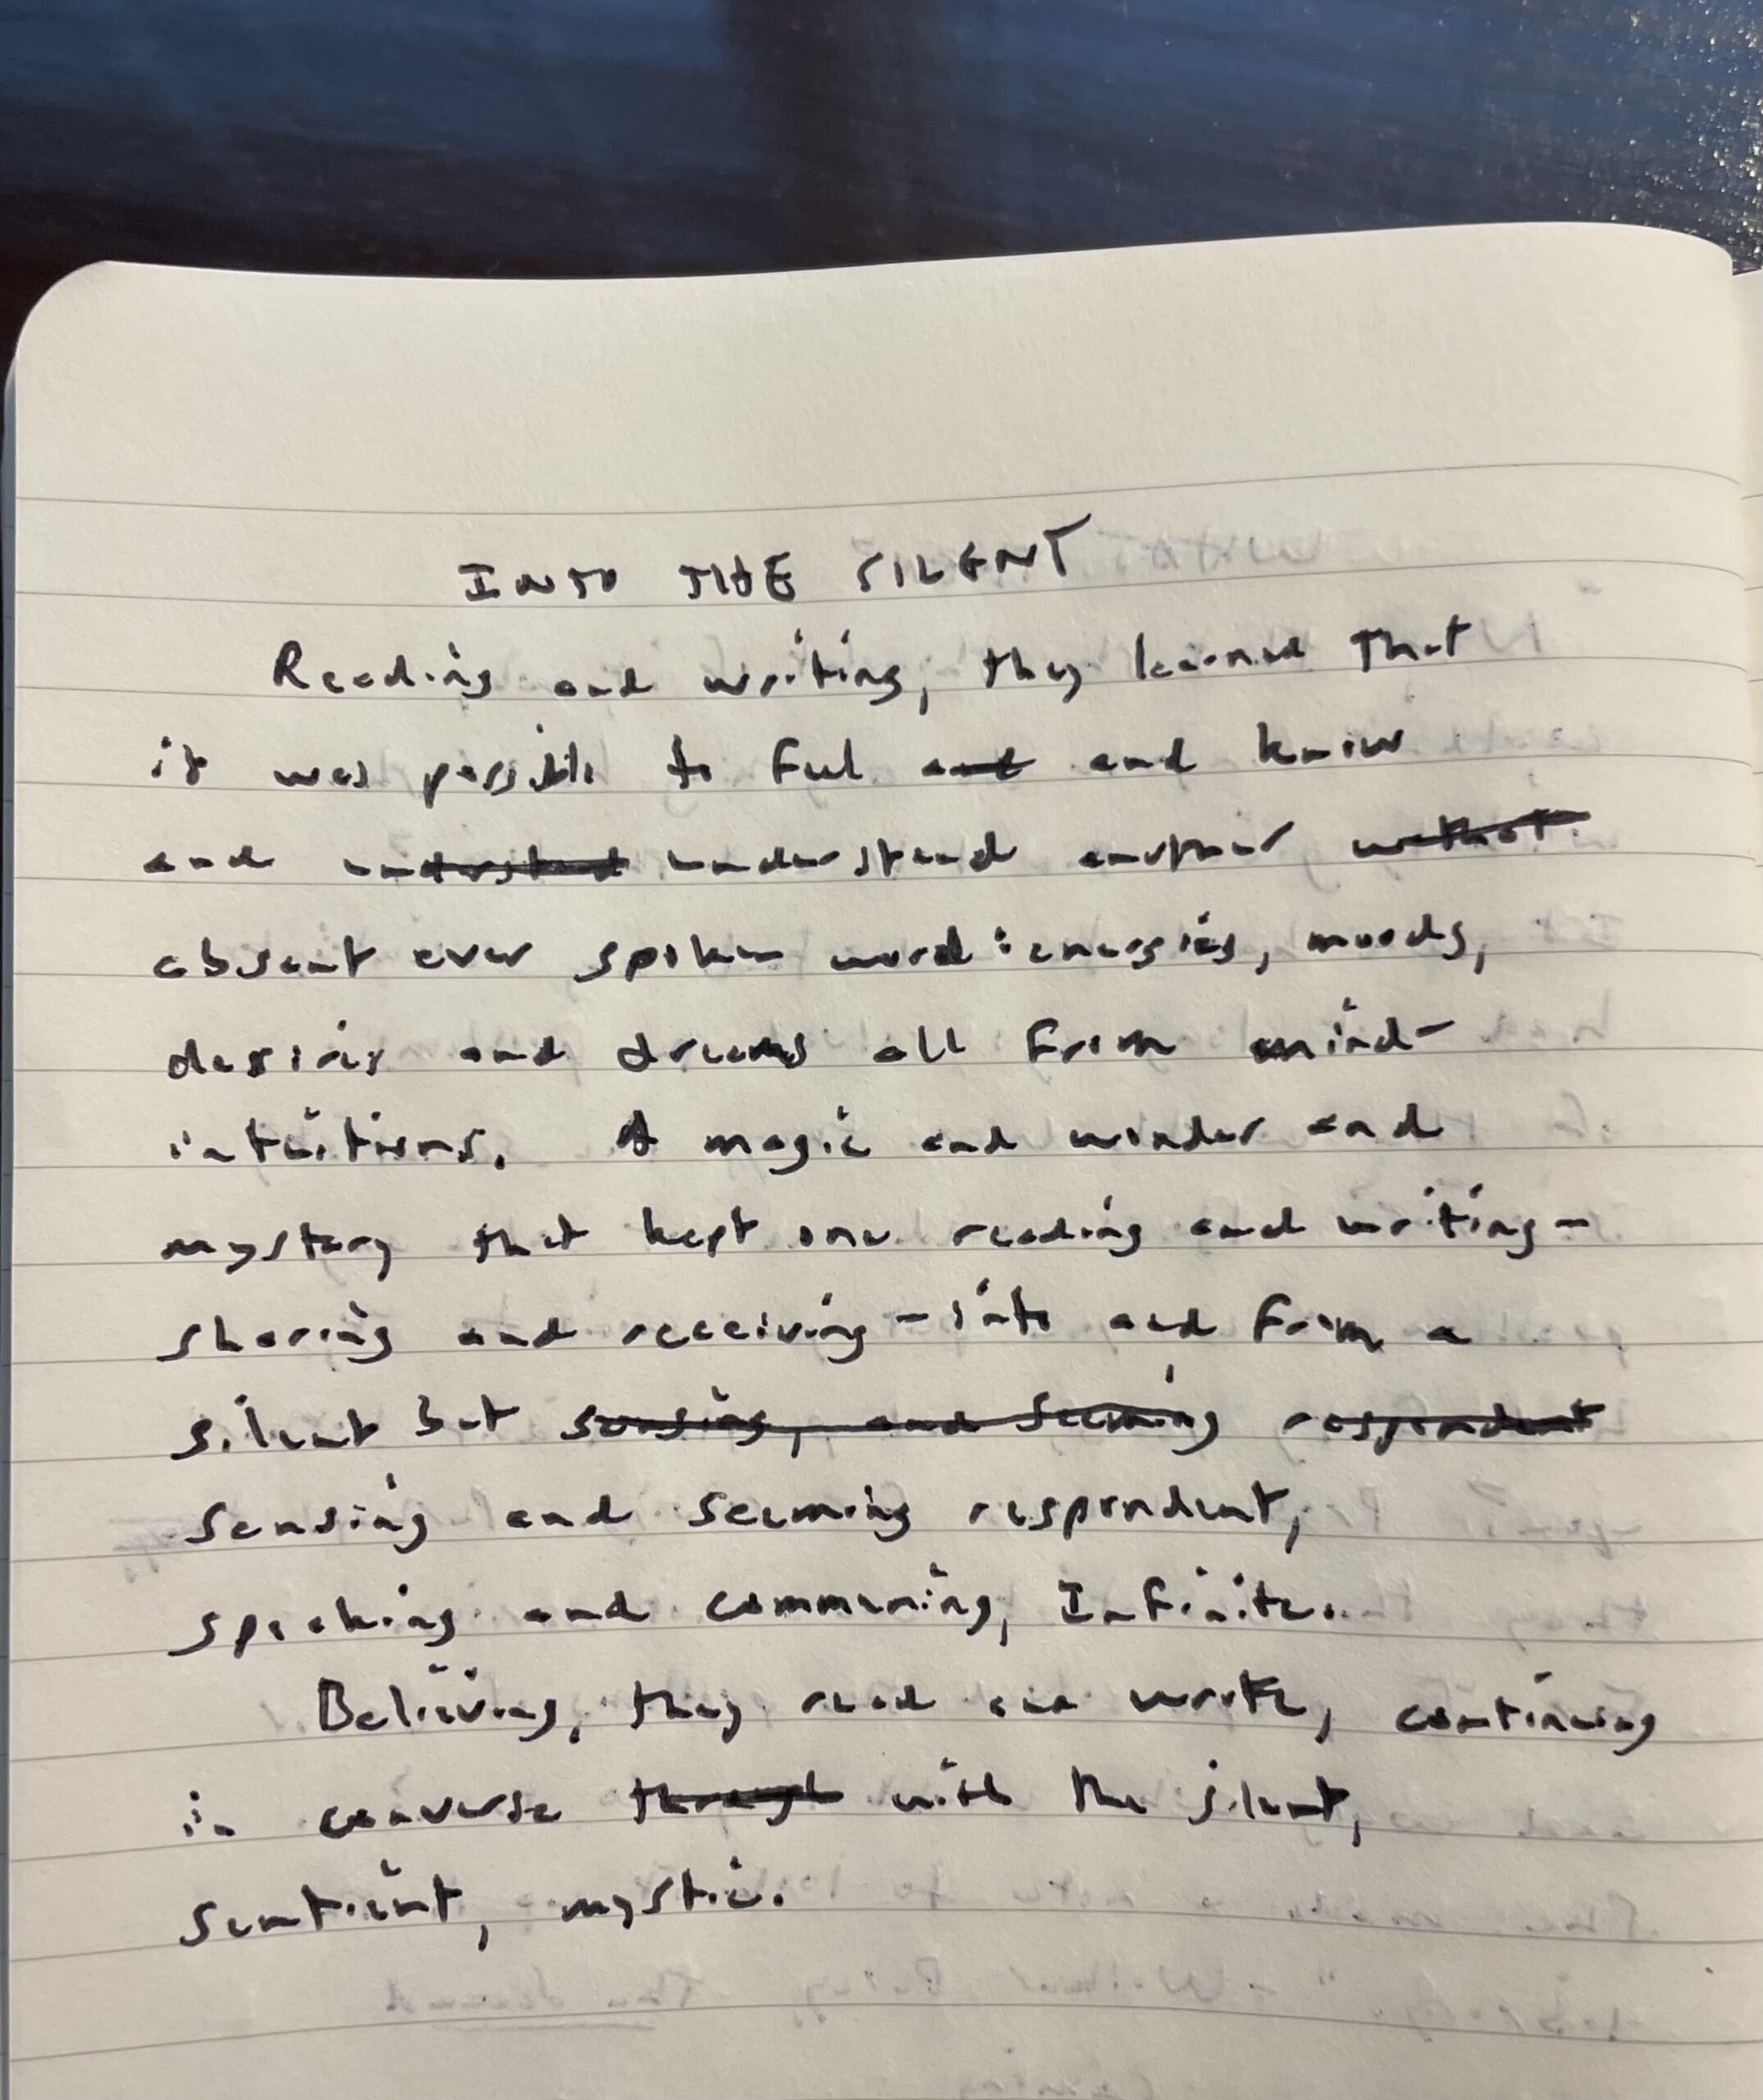 INTO THE SILENT
Reading and writing, they learned that
it was possible to feel and and know
and understand understand another without
absent ever spoken word: energies, moods,
desires and dreams all from mind-
intuitions. A magic and wonder and
mystery that kept one reading and writing-
sharing and receiving - into and from a
silent but sensing, and seeming respondent
sensing and seeming respondent,
speaking and communing, Infinite.
Believing, they read and wrote, continuing
in converse through with the silent,
sentient, mystic.